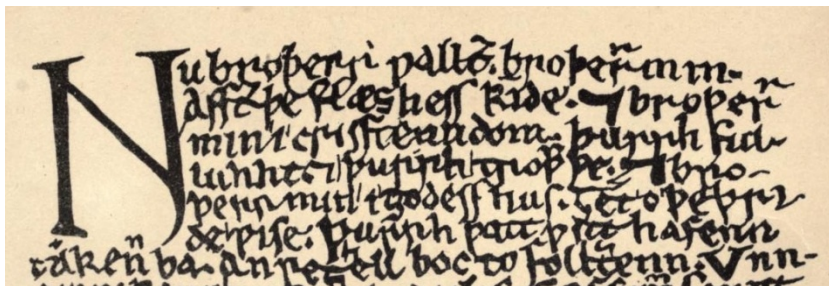 Nu broþerr ƿallt̄. broþer̄ min.
afft̄ þe flæshess kide. ⁊ broþer̄
min i crisstenndom. þurrh ful-
luhht ⁊ þurrh troƿƿþe. ⁊ bro-
þerr min i godess hus. ȝēt o þe þri-
de ƿise. þurrh þatt ƿitt hafenn
takeñ ba. an reȝhell boc to follȝhenn. Unn-